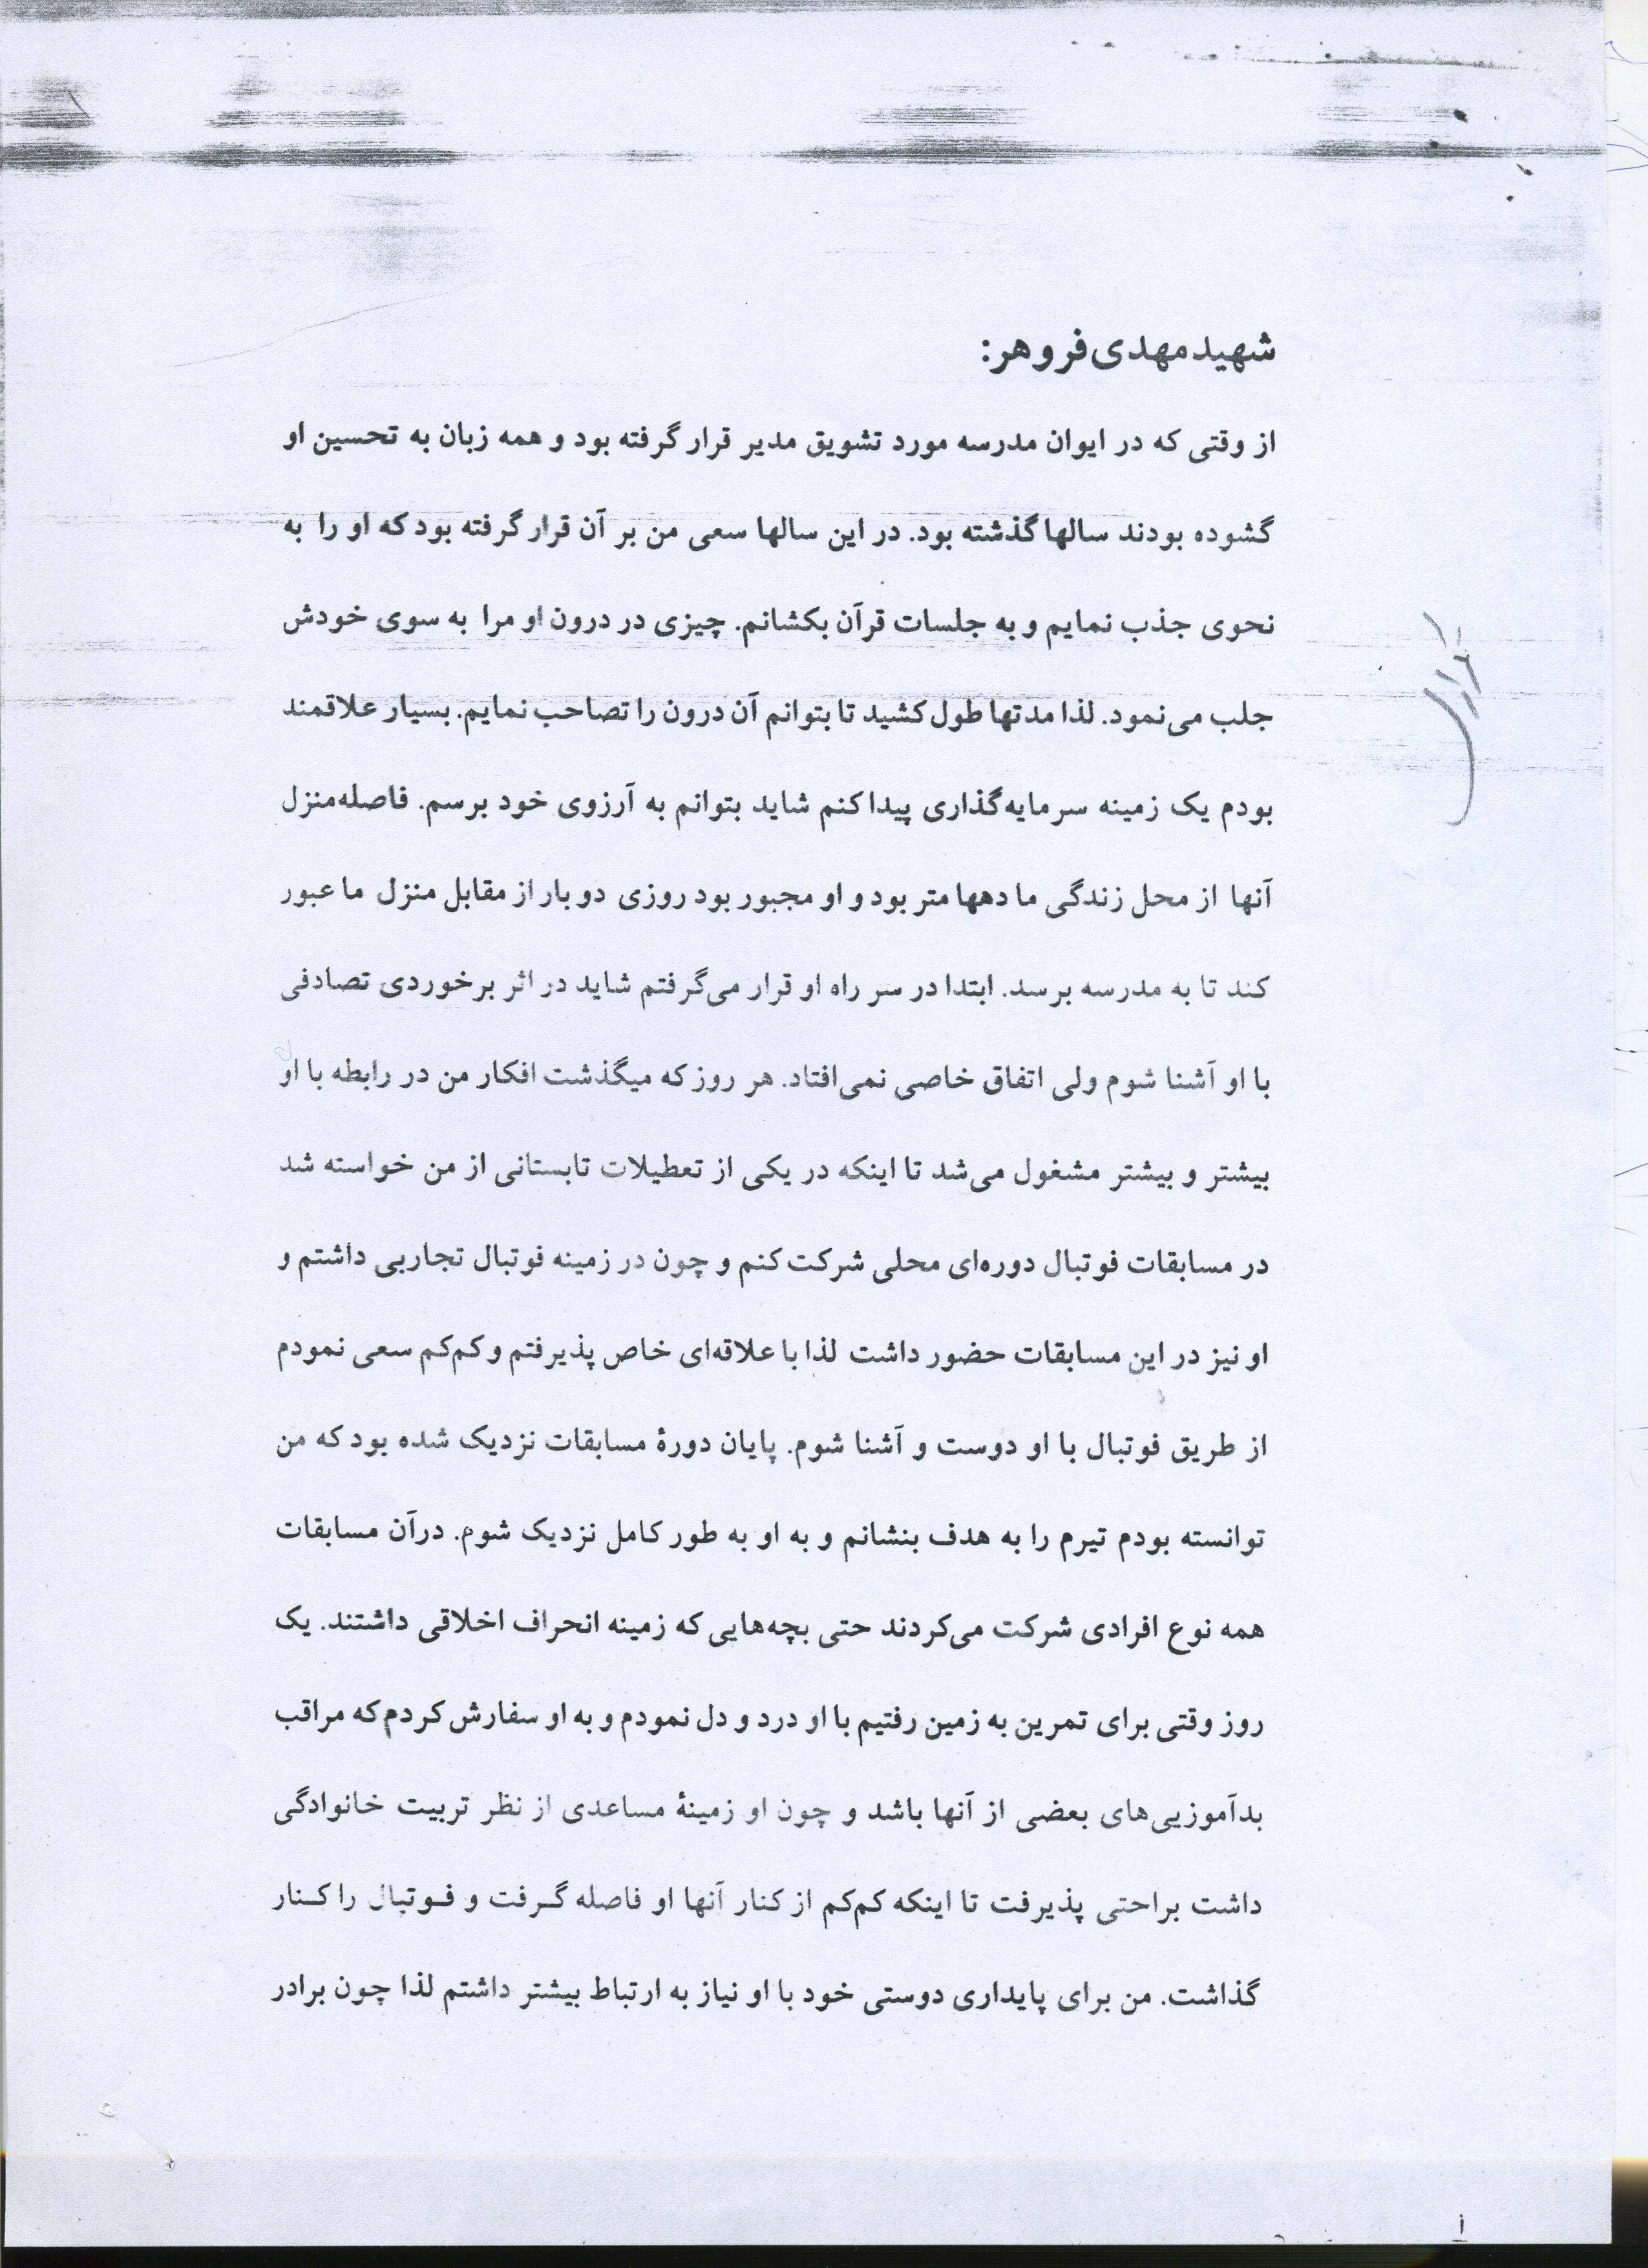 شهید مهدی فروهر:
از وقتی که در ایوان مدرسه مورد تشویق مدیر قرار گرفته بود و همه زبان به تحسین او
گشوده بودند سالها گذشته بود. در این سالها سعی من بر آن قرار گرفته بود که او را به
نحوی جذب نمایم و به جلسات قرآن بکشانم. چیزی در درون او مرا به سوی خودش
جلب می‌نمود. لذا مدتها طول کشید تا بتوانم آن درون را تصاحب نمایم. بسیار علاقمند
بودم یک زمینه سرمایه‌گذاری پیدا کنم شاید بتوانم به آرزوی خود برسم. فاصله‌منزل
آنها از محل زندگی ما دهها متر بود و او مجبور بود روزی دو بار از مقابل منزل ما عبور
کند تا به مدرسه برسد. ابتدا در سر راه او قرار می‌گرفتم شاید در اثر برخوردی تصادفی
با او آشنا شوم ولی اتفاق خاصی نمی‌افتاد. هر روز که میگذشت افکار من در رابطه با او
بیشتر و بیشتر مشغول می‌شد تا اینکه در یکی از تعطیلات تابستانی از من خواسته شد
در مسابقات فوتبال دوره‌ای محلی شرکت کنم و چون در زمینه فوتبال تجاربی داشتم و
او نیز در این مسابقات حضور داشت لذا با علاقه‌ای خاص پذیرفتم و کم‌کم سعی نمودم
از طریق فوتبال با او دوست و آشنا شوم. پایان دورهٔ مسابقات نزدیک شده بود که من
توانسته بودم تیرم را به هدف بنشانم و به او به طور کامل نزدیک شوم. درآن مسابقات
همه نوع افرادی شرکت می‌کردند حتی بچه‌هایی که زمینه انحراف اخلاقی داشتند. یک
روز وقتی برای تمرین به زمین رفتیم با او درد و دل نمودم و به او سفارش کردم که مراقب
بدآموزیی‌های بعضی از آنها باشد و چون او زمینهٔ مساعدی از نظر تربیت خانوادگی
داشت براحتی پذیرفت تا اینکه کم‌کم از کنار آنها او فاصله گـرفت و فـوتبال را کـنار
گذاشت. من برای پایداری دوستی خود با او نیاز به ارتباط بیشتر داشتم لذا چون برادر